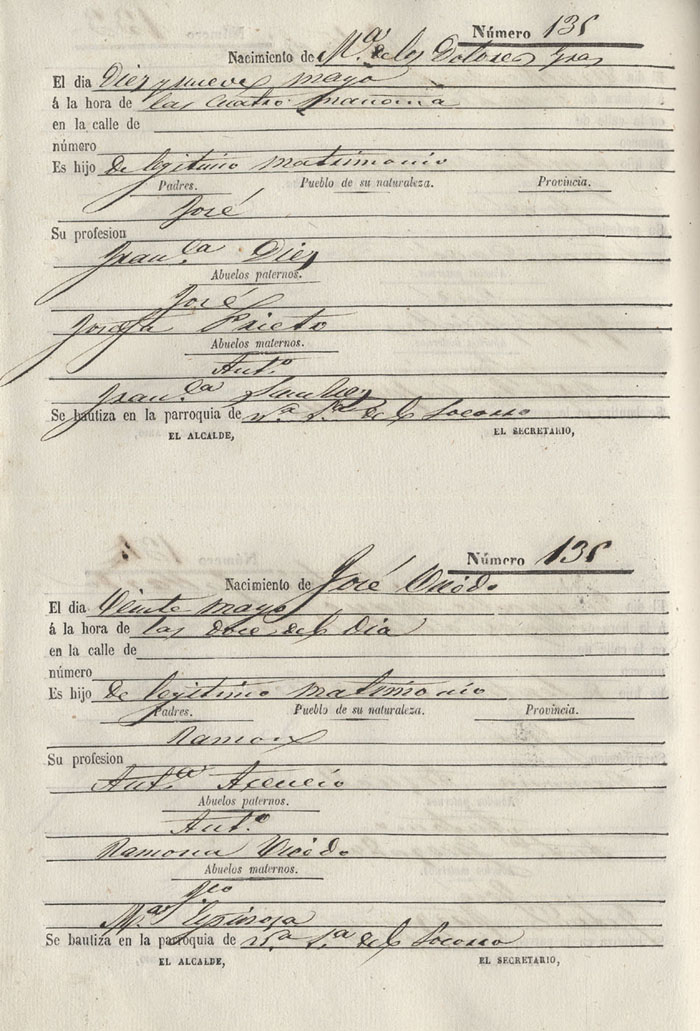 Número 135
Nacimiento de Mª de los Dolores Gras
El dia Diez y nueve mayo
á la hora de las cuatro mañana
en la calle de
número
Es hijo de legitimo matrimonio
Padres. Pueblo de su naturaleza. Provincia.
José
Su profesion
Franca Diez
Abuelos paternos.
José
Josefa Prieto
Abuelos maternos.
Antº
Franca Sanchez
Se bautiza en la parroquia de Nª Sª del Socorro
EL ALCALDE, EL SECRETARIO,
Número 136
Nacimiento de José
El dia Veinte mayo
á la hora de las doce del dia
en la calle de
número
Es hijo de legitimo matrimonio
Padres. Pueblo de su naturaleza. Provincia.
Ramon
Su profesion
Antª Asencio
Abuelos paternos.
Antº
Ramona
Abuelos maternos.
Mª Espinosa
Se bautiza en la parroquia de Nª Sª del Socorro
EL ALCALDE, EL SECRETARIO,